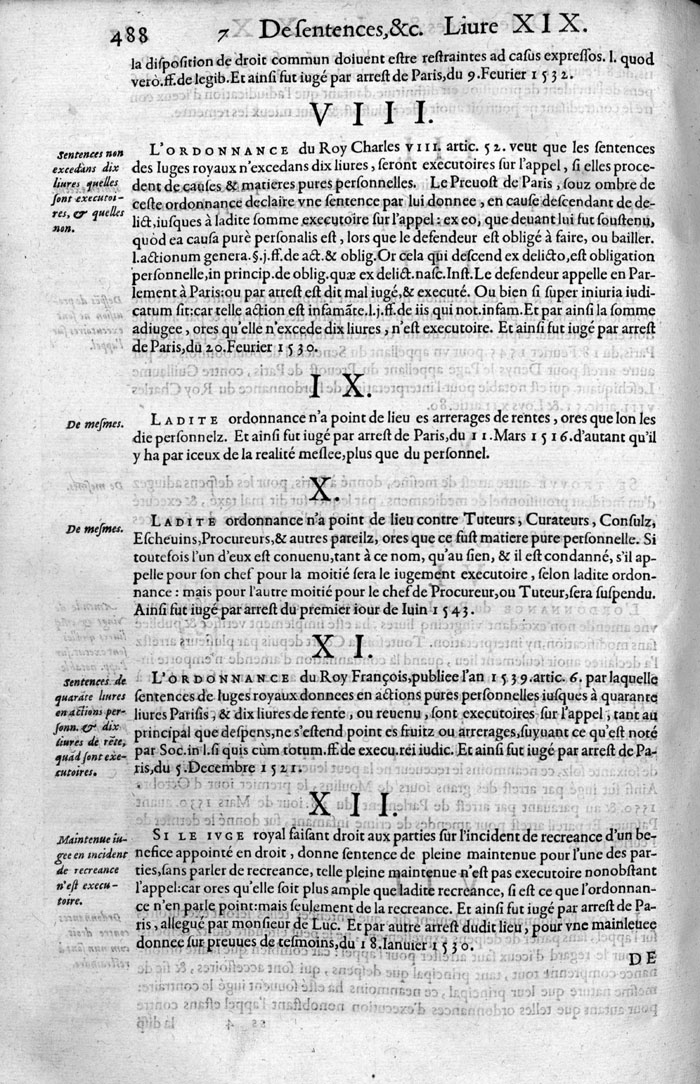 488 7 De sentences, &c. Liure XIX.
la disposition de droit commun doiuent estre restraintes ad casus expressos. l. quod
verò. ff. de legib. Et ainsi fut iugé par arrest de Paris, du 9. Feurier 1532.
VIII.
Sentences non
excedans dix
liures quelles
sont executoi-
res, & quelles
non.
L'ORDONNANCE du Roy Charles VIII. artic. 52. veut que les sentences
des Iuges royaux n'excedans dix liures, seront executoires sur l'appel, si elles proce-
dent de causes & matieres pures personnelles. Le Preuost de Paris, souz ombre de
ceste ordonnance declaire vne sentence par lui donnee, en cause descendant de de-
lict, iusques à ladite somme executoire sur l'appel: ex eo, que deuant lui fut soustenu,
quòd ea causa purè personalis est, lors que le defendeur est obligé à faire, ou bailler.
l. actionum genera. §. j. ff. de act. & oblig. Or cela qui descend ex delicto, est obligation
personnelle, in princip. de oblig. quæ ex delict. nasc. Inst. Le defendeur appelle en Par-
lement à Paris: ou par arrest est dit mal iugé, & executé. Ou bien si super iniuria iudi-
catum sit: car telle action est infamãte. l. j. ff. de iis qui not. infam. Et par ainsi la somme
adiugee, ores qu'elle n'excede dix liures, n'est executoire. Et ainsi fut iugé par arrest
de Paris, du 20. Feurier 1530.
IX.
De mesmes.
LADITE ordonnance n'a point de lieu es arrerages de rentes, ores que lon les
die personnelz. Et ainsi fut iugé par arrest de Paris, du 11. Mars 1516. d'autant qu'il
y ha par iceux de la realité meslee, plus que du personnel.
X.
De mesmes.
LADITE ordonnance n'a point de lieu contre Tuteurs, Curateurs, Consulz,
Escheuins, Procureurs, & autres pareilz, ores que ce fust matiere pure personnelle. Si
toutefois l'un d'eux est conuenu, tant à ce nom, qu'au sien, & il est condanné, s'il ap-
pelle pour son chef pour la moitié sera le iugement executoire, selon ladite ordon-
nance: mais pour l'autre moitié pour le chef de Procureur, ou Tuteur, sera suspendu.
Ainsi fut iugé par arrest du premier iour de Iuin 1543.
XI.
Sentences de
quarãte liures
en actions per-
sonn. & dix
liures de rẽte,
quãd sont exe-
cutoires.
L'ORDONNANCE du Roy François, publiee l'an 1539. artic. 6. par laquelle
sentences de Iuges royaux donnees en actions pures personnelles iusques à quarante
liures Parisis, & dix liures de rente, ou reuenu, sont executoires sur l'appel, tant au
principal que despens, ne s'estend point es fruitz ou arrerages, suyuant ce qu'est noté
par Soc. in l. si quis cùm totum. ff. de execu. rei iudic. Et ainsi fut iugé par arrest de Pa-
ris, du 5. Decembre 1521.
XII.
Maintenue iu-
gee en incident
de recreance
n'est execu-
toire.
SI LE IVGE royal faisant droit aux parties sur l'incident de recreance d'un be-
nefice appointé en droit, donne sentence de pleine maintenue pour l'une des par-
ties, sans parler de recreance, telle pleine maintenue n'est pas executoire nonobstant
l'appel: car ores qu'elle soit plus ample que ladite recreance, si est ce que l'ordonnan-
ce n'en parle point: mais seulement de la recreance. Et ainsi fut iugé par arrest de Pa-
ris, allegué par monsieur de Luc. Et par autre arrest dudit lieu, pour vne mainleuee
donnee sur preuues de tesmoins, du 18. Ianuier 1530.
DE